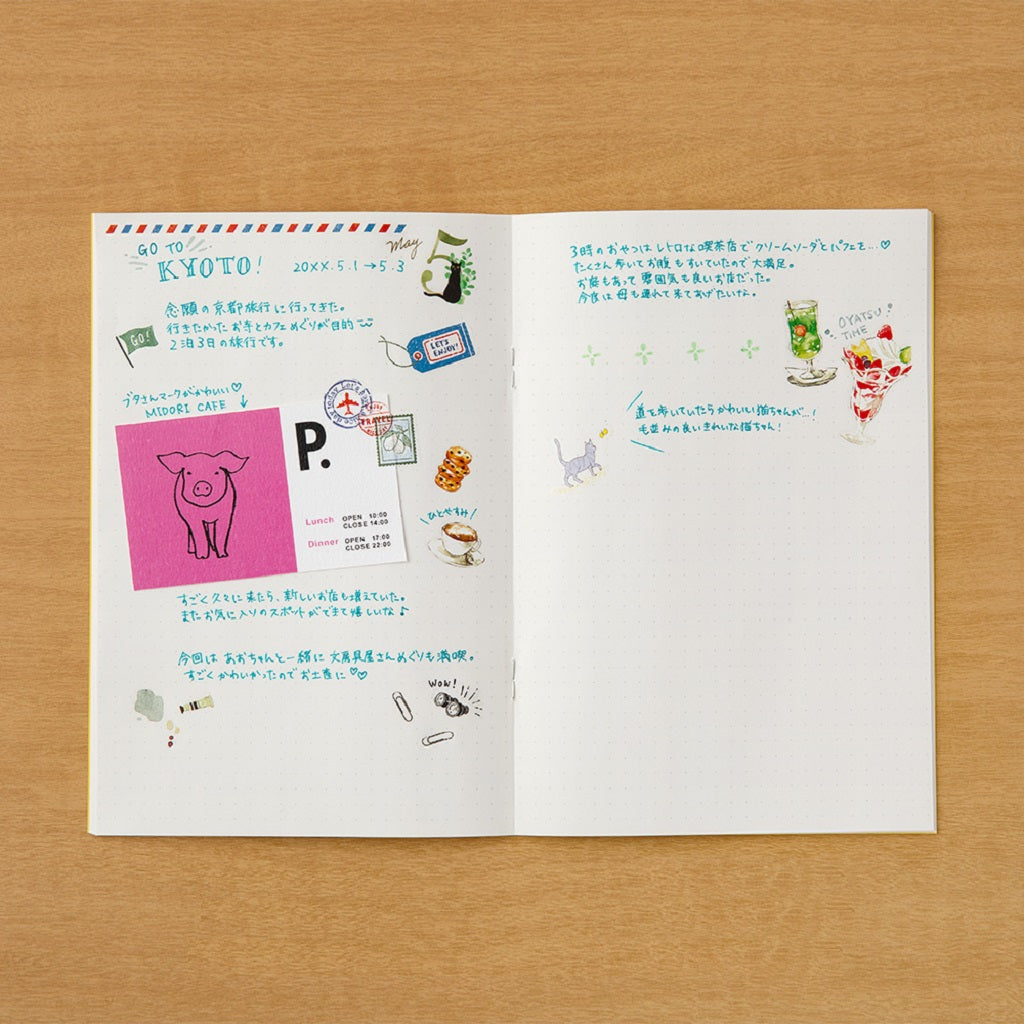 GO TO
KYOTO!
20XX.5.1→5.3
May
5
念願の京都旅行に行ってきた。
行きたかったお寺とカフェめぐりが目的
2泊3日の旅行です。
GO!
LET'S
ENJOY!
ブタさんマークがかわいい♡
MIDORI CAFE ↓
P.
TRAVEL
Lunch OPEN 10:00
CLOSE 14:00
Dinner OPEN 17:00
CLOSE 22:00
ひとやすみ
すごく久々に来たら、新しいお店も増えていた。
またお気に入りのスポットができて嬉しいな♪
今回はあおちゃんと一緒に文房具屋さんめぐりも満喫。
すごくかわいかったのでお土産に♡♡
Wow!
3時のおやつはレトロな喫茶店でクリームソーダとパフェを…♡
たくさん歩いてお腹もすいていたので大満足。
お庭もあって雰囲気も良いお店だった。
今度は母も連れて来てあげたいな。
OYATSU
TIME
道を歩いていたらかわいい猫ちゃんが…!
毛並みの良いきれいな猫ちゃん!